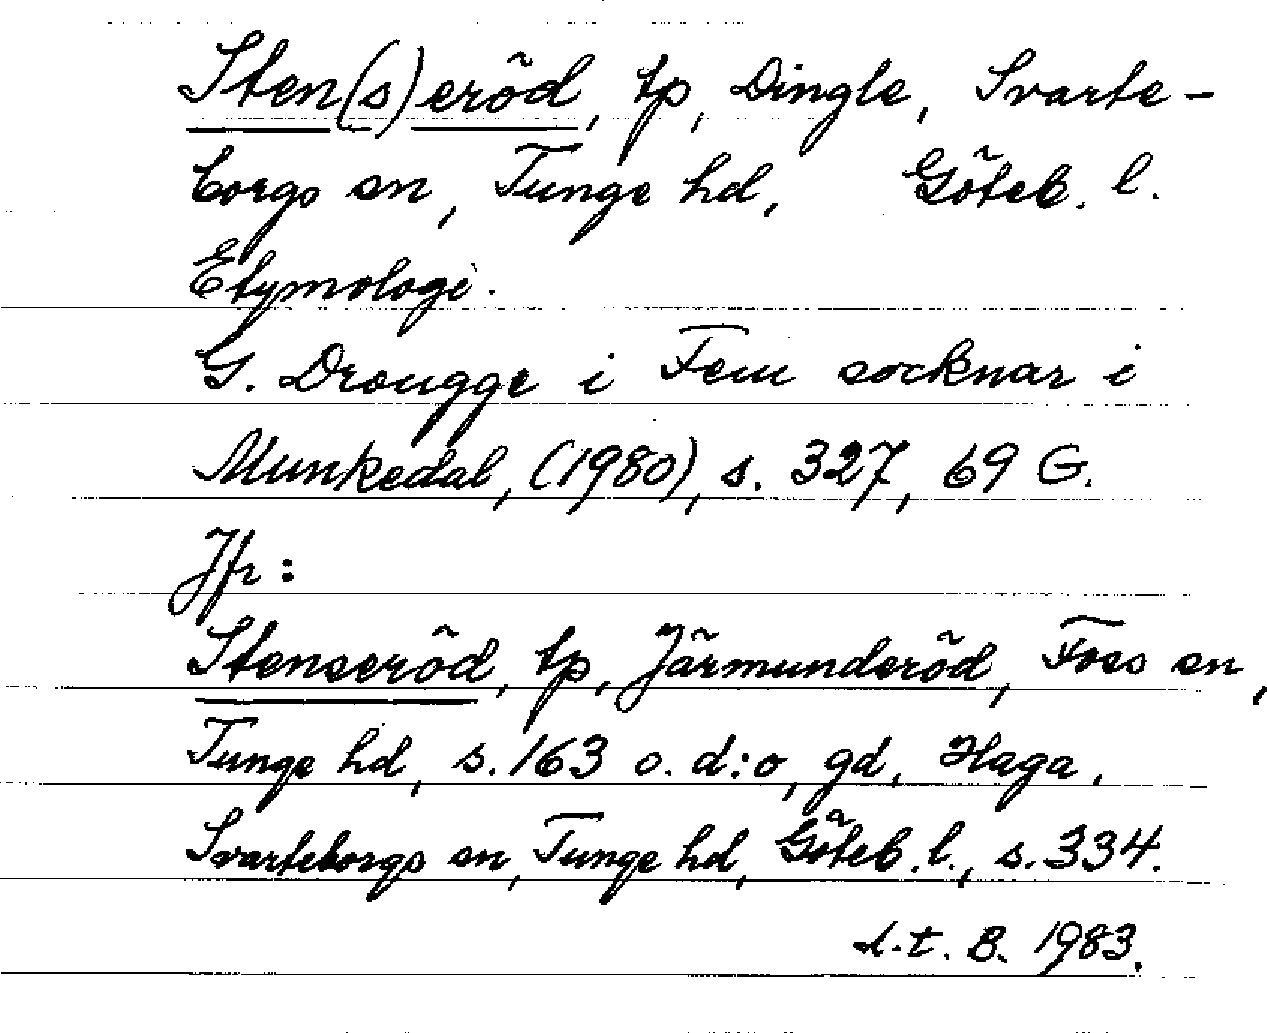 Sten(s)eröd, tp, Dingle, Svarte-
borgs sn, Tunge hd, Göteb. l.
Etymologi.
G. Drougge i Fem socknar i
Munkedal, (1980), s. 327, 69 G.
Jfr:
Stenseröd, tp, Järmunderöd, Foss sn,
Tunge hd, s. 163 o. d:o, gd, Haga,
Svarteborgs sn, Tunge hd, Göteb. l., s. 334.
B. 1983.